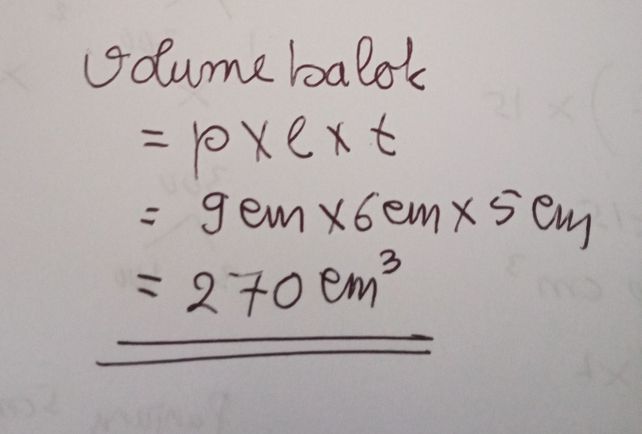 Volume balok
= p x l x t
= 9 cm x 6 cm x 5 cm
= 270 cm³